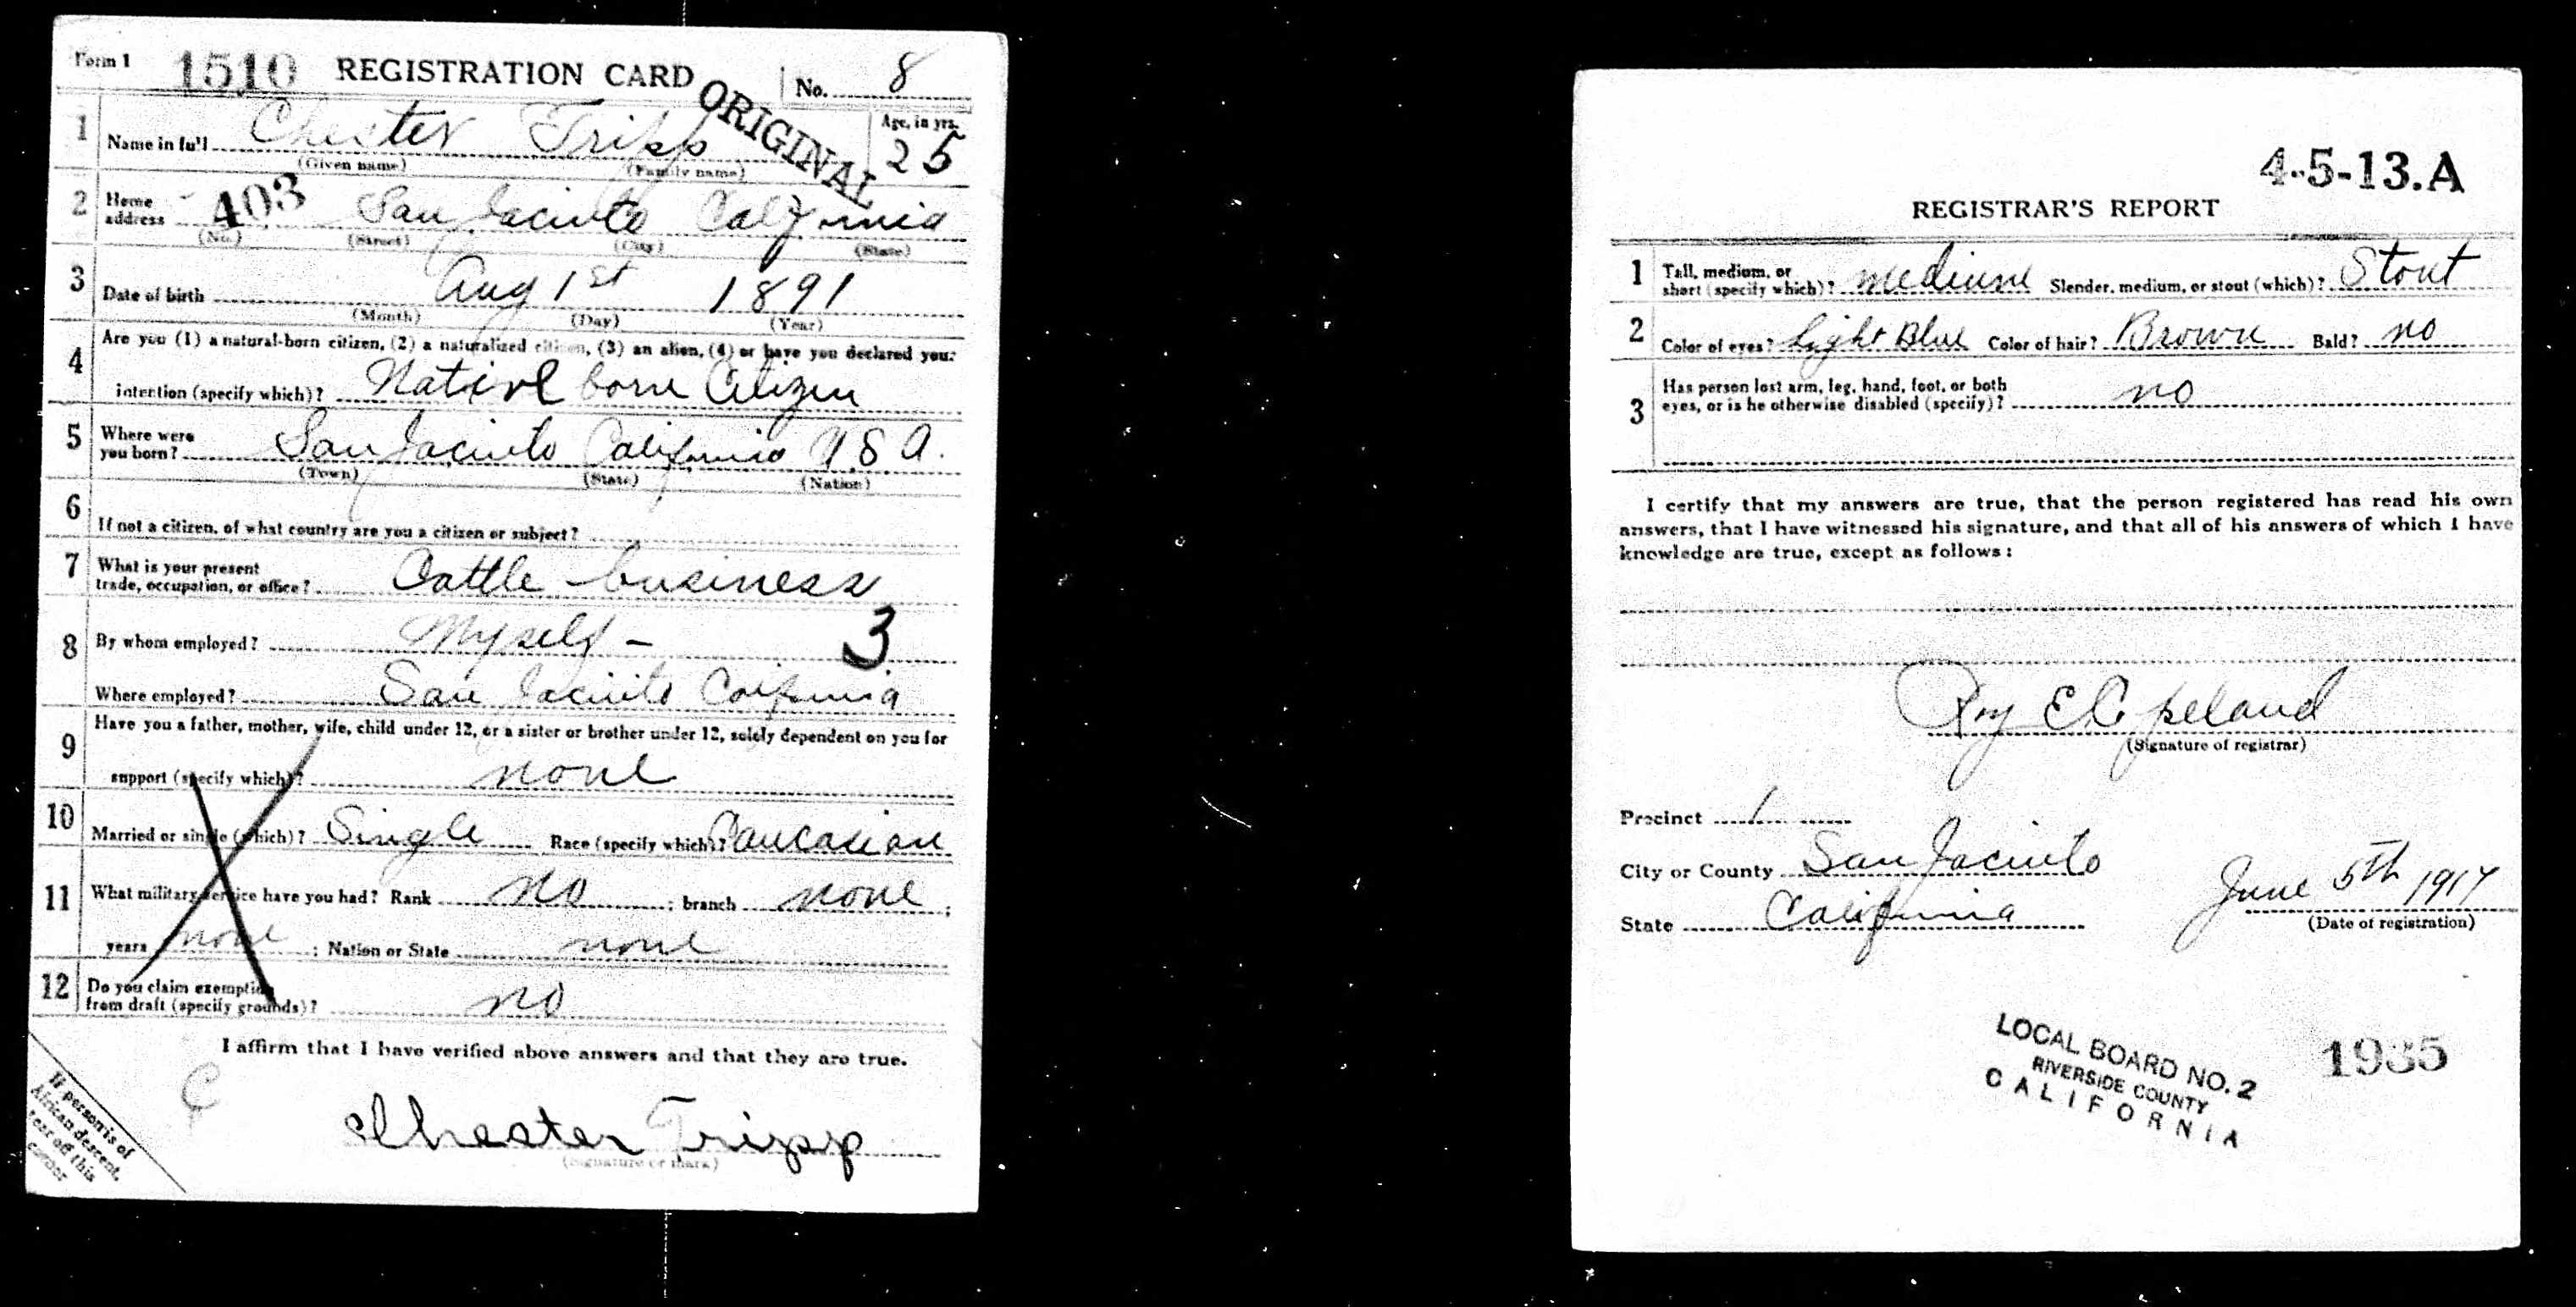 Form 1 1510 REGISTRATION CARD No. 8
ORIGINAL
1 Name in full Chester Tripp Age, in yrs. 25
(Given name) (Family name)
2 Home address 403 San Jacinto California
(No.) (Street) (City) (State)
3 Date of birth Aug 1st 1891
(Month) (Day) (Year)
4 Are you (1) a natural-born citizen, (2) a naturalized citizen, (3) an alien, (4) or have you declared your
intention (specify which)? Native born Citizen
5 Where were you born? San Jacinto California U.S.A.
(Town) (State) (Nation)
6 If not a citizen, of what country are you a citizen or subject?
7 What is your present trade, occupation, or office? Cattle business
8 By whom employed? Myself - 3
Where employed? San Jacinto California
9 Have you a father, mother, wife, child under 12, or a sister or brother under 12, solely dependent on you for
support (specify which)? none
10 Married or single (which)? Single Race (specify which)? Caucasian
11 What military service have you had? Rank no ; branch none ;
years none ; Nation or State none
12 Do you claim exemption from draft (specify grounds)? no
I affirm that I have verified above answers and that they are true.
C
Chester Tripp
(Signature or mark)
If person is of
African descent,
tear off this
corner
4-5-13.A
REGISTRAR'S REPORT
1 Tall, medium, or short (specify which)? medium Slender, medium, or stout (which)? Stout
2 Color of eyes? Light Blue Color of hair? Brown Bald? no
3 Has person lost arm, leg, hand, foot, or both eyes, or is he otherwise disabled (specify)? no
I certify that my answers are true, that the person registered has read his own
answers, that I have witnessed his signature, and that all of his answers of which I have
knowledge are true, except as follows:
Roy E Copeland
(Signature of registrar)
Precinct 1
City or County San Jacinto
State California
June 5th 1917
(Date of registration)
LOCAL BOARD NO. 2
RIVERSIDE COUNTY
CALIFORNIA
1935